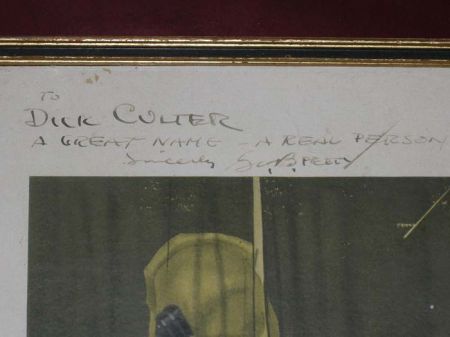 TO
DICK CULTER
A GREAT NAME - A REAL PERSON
Sincerely